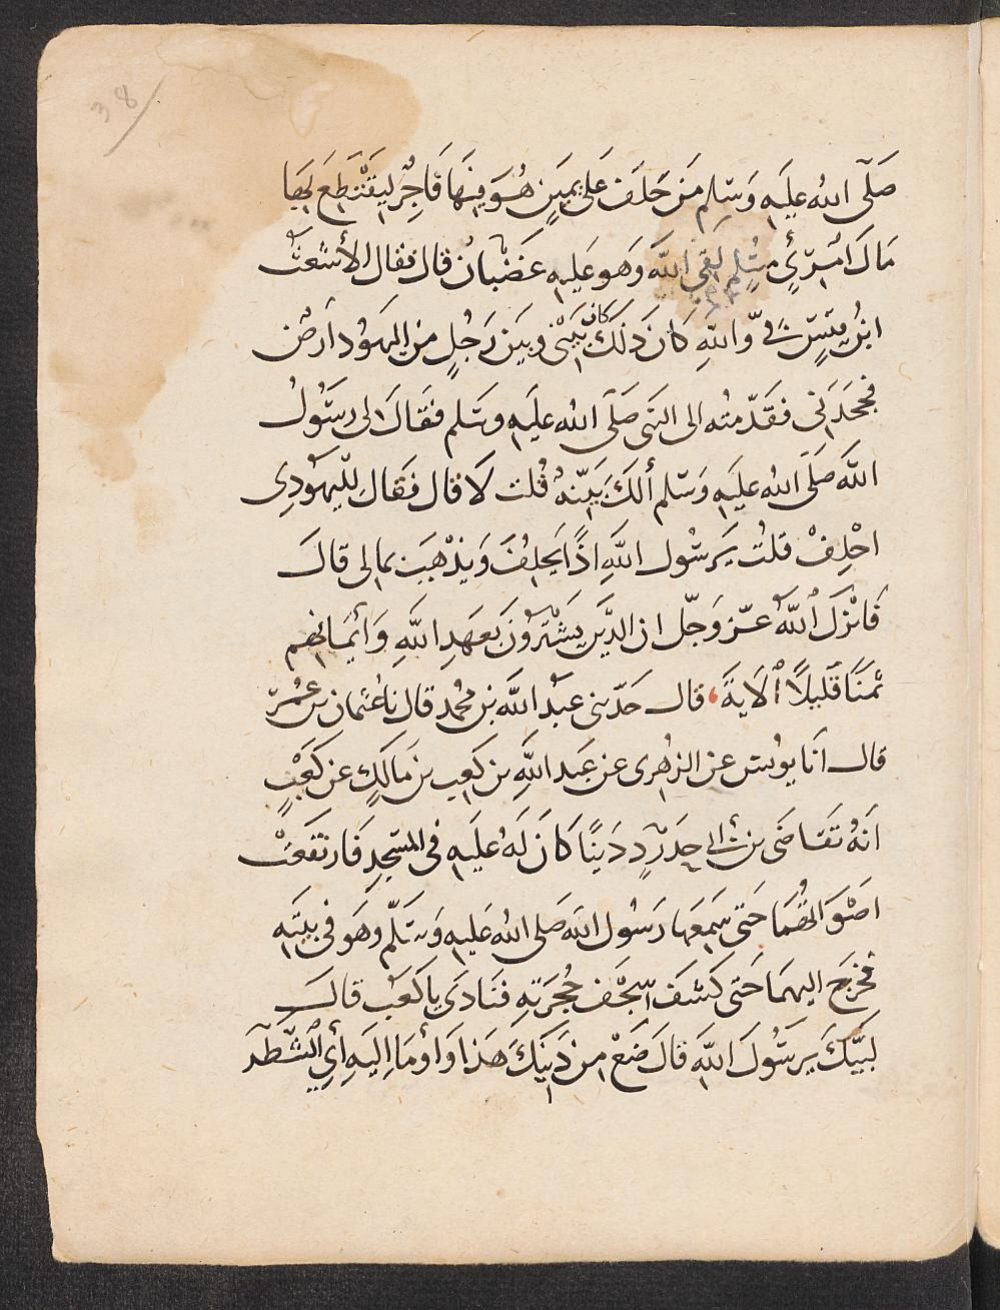 38
صَلّى الله عليَه وَسَلم مَن حَلَفَ عَلى يميَنٍ هُوَ فِيهَا فَاجِرٌ ليَقْتَطِعَ بِهَا
مَالَ امْرِئٍ مُسْلِمٍ لَقِىَ اللَّه وَهو عَليهِ غَضْبَانُ قال فقال الأشعَثُ
ابنُ قيَسٍ فىَّ وَاللَّهِ كانَ ذَلكَ كان بَيْنى وبيَن رَجُلٍ مِنَ اليَهوُد أرْضٌ
فجَحَدَنى فقَدَّمتُه الى النبَى صَلّى الله عليَه وسَلم فقَالَ لى رسَُولُ
اللَّه صَلّى الله عليَه وَسَلم ألكَ بَيّنَةٌ قُلت لَا قال فَقالَ لليَهوُدِى
احْلِفْ قلتُ يَرسَُول اللَّهِ اذًا يَحلِفُ وَيذْهَبَ بمالى قالَ
فَانْزَلَ اللَّهُ عَزّ وَجَلّ ان الذَّين يَشْتَرُونَ بعَهدِ اللَّهِ وَأيْمَانِهم
ثمَنًا قَليلًا الَايَةَ، قال حَدّثنى عبدُ اللَّه بن محُمد قال نا عُثمان بن عُمَرَ
قال أنَا يوُنس عن الزهُرى عن عَبد اللَّهِ بن كَعبِ بن مَالكٍ عن كَعْبٍ
انَّهُ تَقاضَى بن أَبى حَدْرَدٍ دَيْنًا كَانَ لَهُ عَليَهِ فى المسَجِدِ فَارتفَعَتْ
اصْوَاتُهُمَا حَتى سَمِعَهَا رَسُول اللَّه صَلى الله عَليه وَسَلّم وهَوَ فى بيَتِهِ
فخَرَجَ اليهِمَا حَتى كَشفَ سِجْفَ حُجْرَتهِ فنَادَى يا كَعْبُ قالَ
لَبيّكَ يرسَُولَ اللَّهِ قالَ ضَعْ مِن دَينِكَ هَذا وَاوْمَا اِليَهِ أيِ الشَّطْرَ